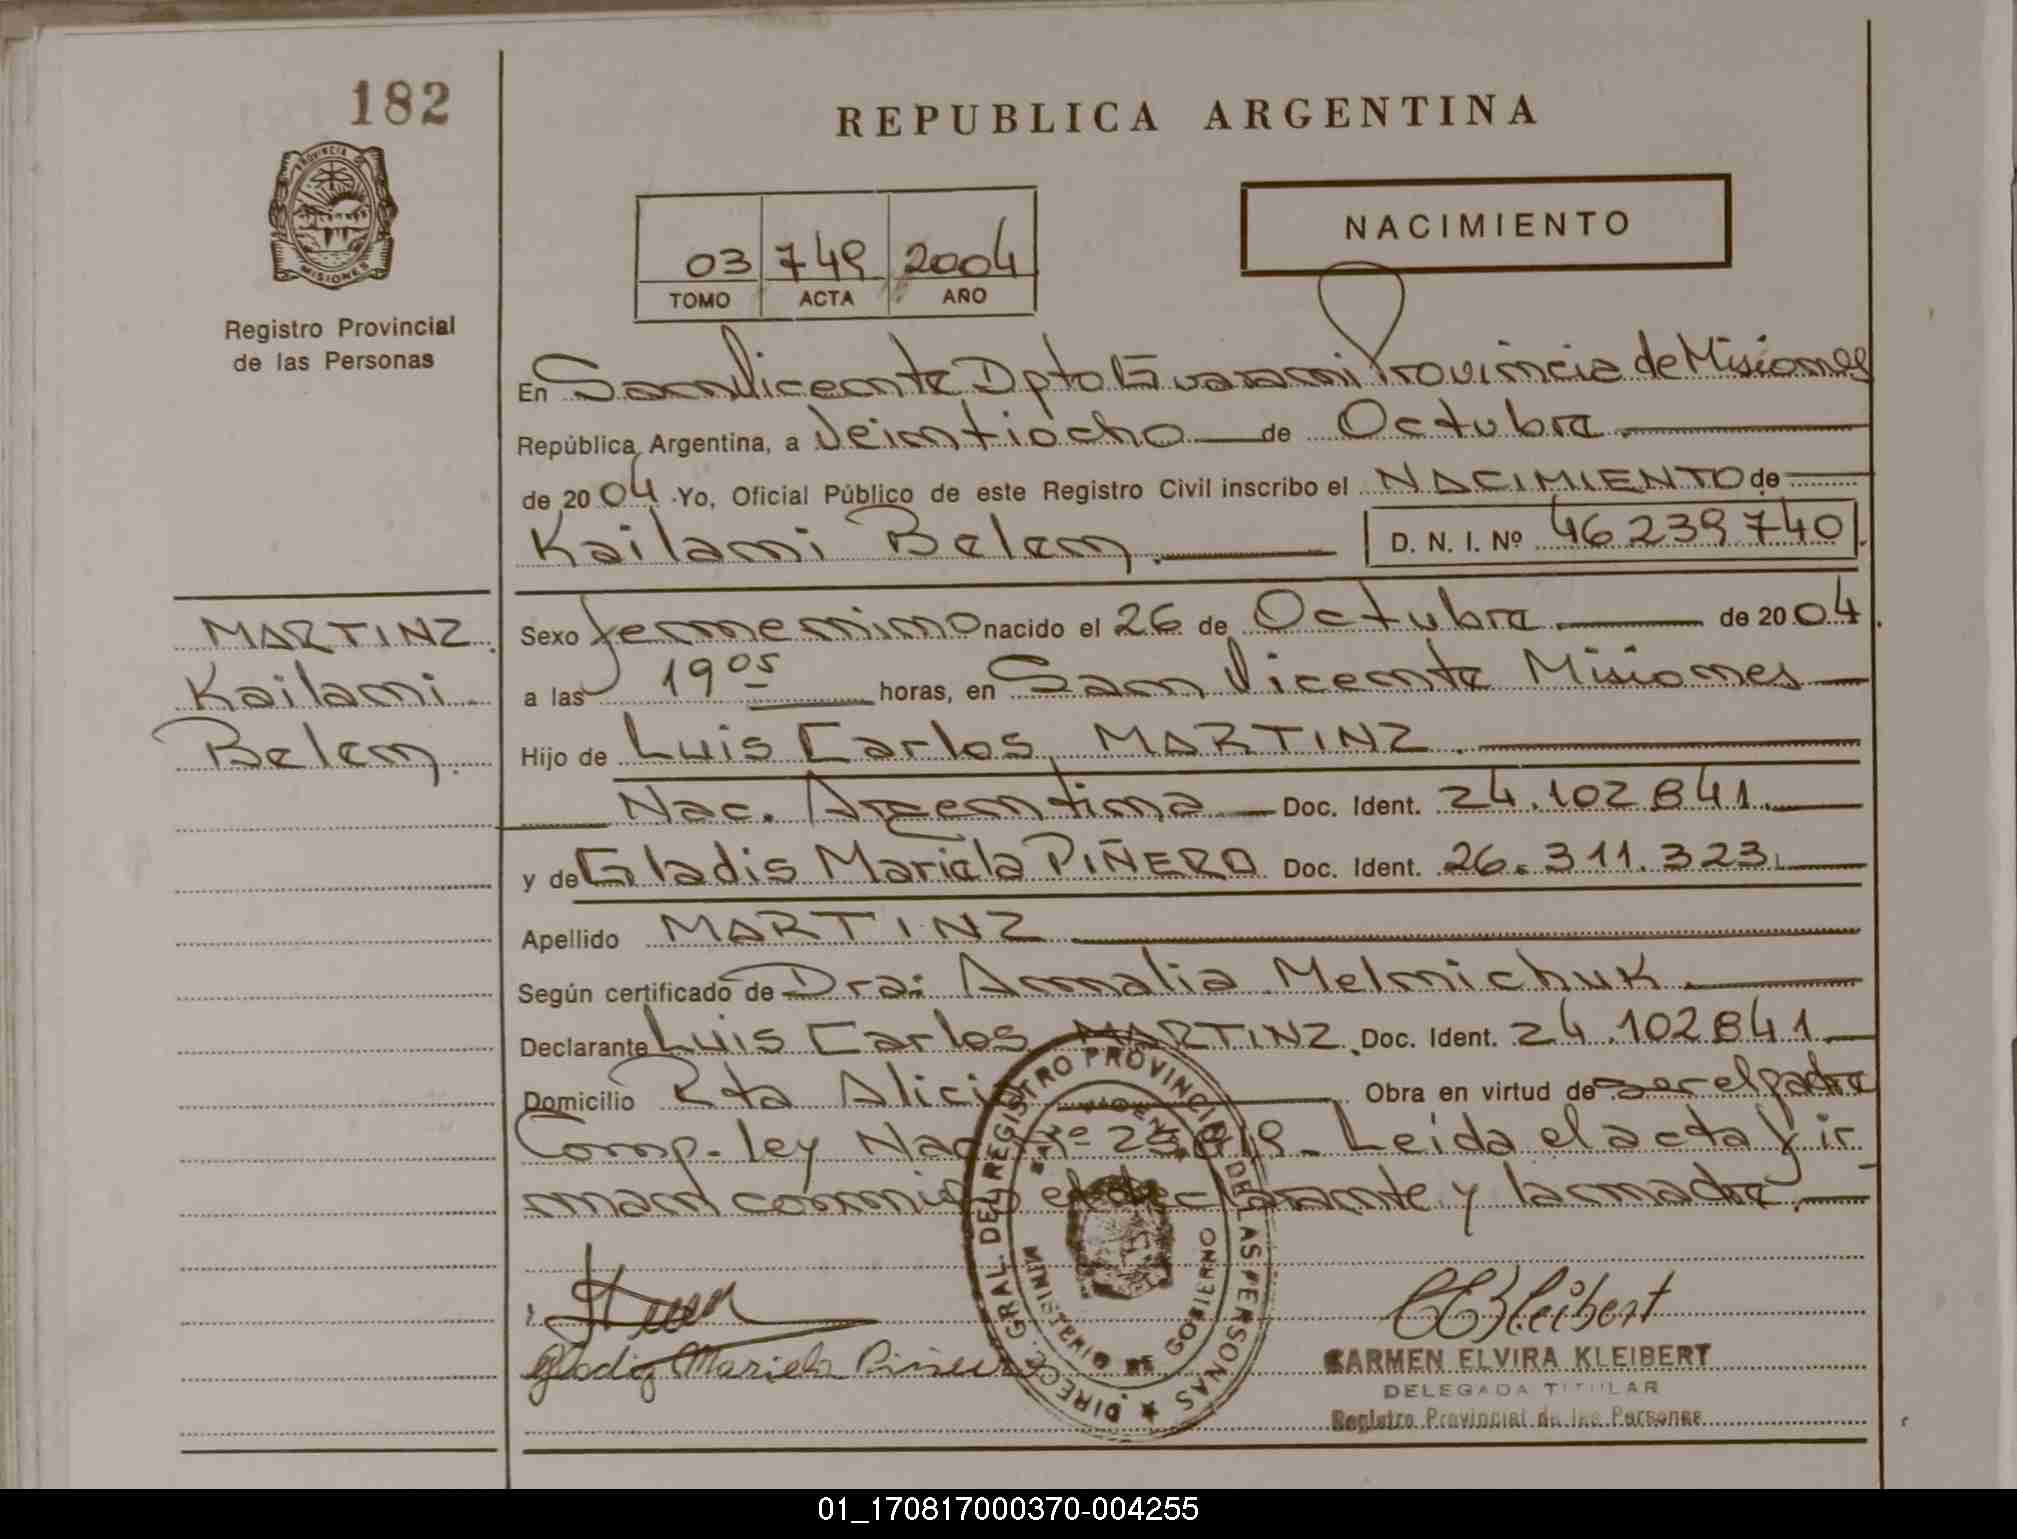 182
PROVINCIA DE
MISIONES
Registro Provincial
de las Personas
REPUBLICA ARGENTINA
NACIMIENTO
03 749 2004
TOMO ACTA AÑO
En San Vicente Dpto Guarani Provincia de Misiones
República Argentina, a Veintiocho de Octubre
de 2004 Yo, Oficial Público de este Registro Civil inscribo el NACIMIENTO de
Kailani Belen. D. N. I. Nº 46239740
MARTINZ
Kailani
Belen.
Sexo femenino nacido el 26 de Octubre de 2004
a las 19 05 horas, en San Vicente Misiones
Hijo de Luis Carlos MARTINZ.
Nac. Argentina Doc. Ident. 24.102841
y de Gladis Mariela PIÑERO Doc. Ident. 26.311.323
Apellido MARTINZ
Según certificado de Dra: Annalia Melnichuk.
Declarante Luis Carlos MARTINZ. Doc. Ident. 24.102841
Domicilio Rta Alici Obra en virtud de ser el padre
Comp. ley Nac Nº 25.819. Leida el acta fir
man conmigo el declarante y la madre.
Gladis Mariela Piñero
DIRECC. GRAL. DEL REGISTRO PROVINCIAL DE LAS PERSONAS
MINISTERIO DE GOBIERNO
CEKleibert
CARMEN ELVIRA KLEIBERT
DELEGADA TITULAR
Registro Provincial de las Personas
01_170817000370-004255